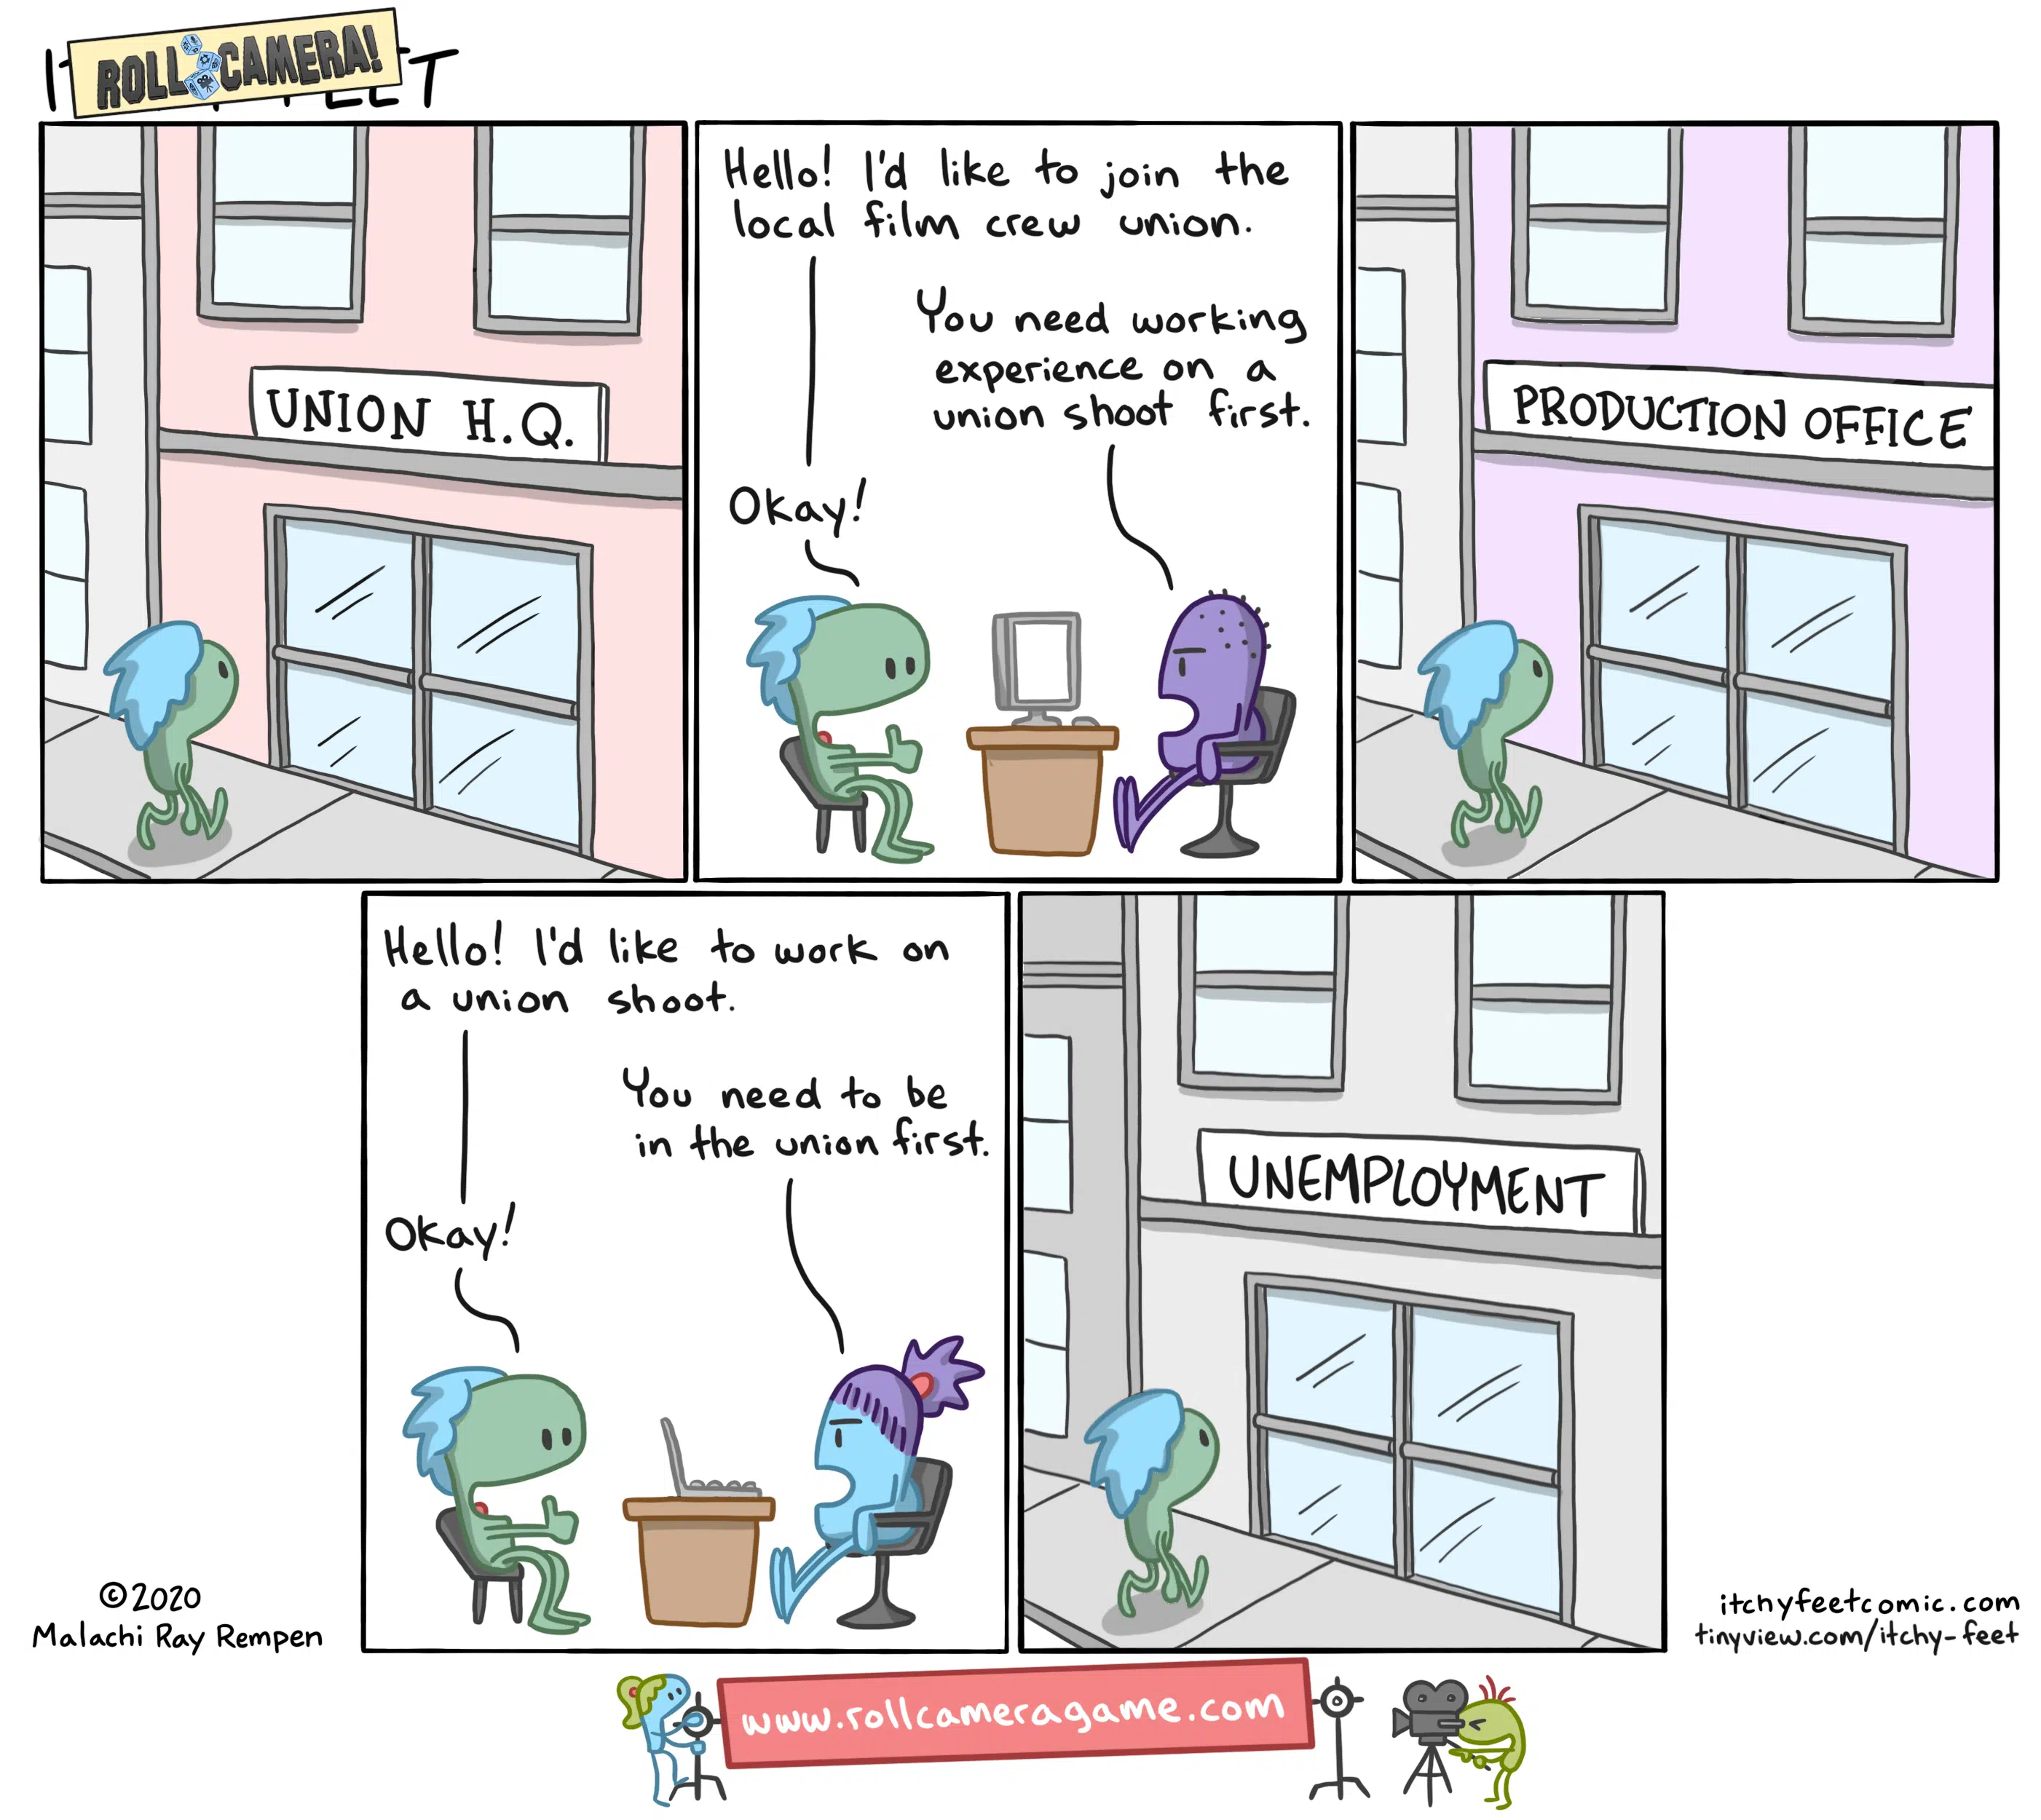 ROLL CAMERA!
UNION H.Q.
Hello! I'd like to join the
local film crew union.
You need working
experience on a
union shoot first.
Okay!
PRODUCTION OFFICE
Hello! I'd like to work on
a union shoot.
You need to be
in the union first.
Okay!
UNEMPLOYMENT
©2020
Malachi Ray Rempen
itchyfeetcomic.com
tinyview.com/itchy-feet
www.rollcameragame.com